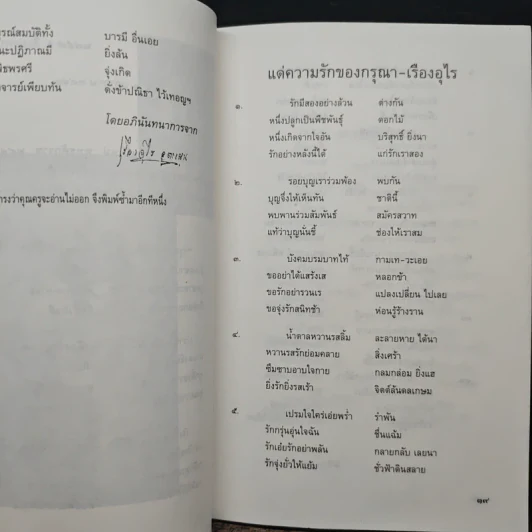 รูณ์สมบัติทั้ง บารมี อื่นเอย
นะปฏิภาณมี ยิ่งล้น
ธิพรศรี จุ่งเกิด
จารย์เพียบทัน ดั่งข้าปณิธา ไว้เทอญฯ
โดยอภินันทนาการจาก
กรงว่าคุณครูจะอ่านไม่ออก จึงพิมพ์ซ้ำมาอีกทีหนึ่ง
แด่ความรักของกรุณา-เรืองอุไร
๑. รักมีสองอย่างล้วน ต่างกัน
หนึ่งปลูกเป็นพืชพันธุ์ ดอกไม้
หนึ่งเกิดจากใจอัน บริสุทธิ์ ยิ่งนา
รักอย่างหลังนี้ได้ แก่รักเราสอง
๒. รอยบุญเราร่วมพ้อง พบกัน
บุญจึ่งให้เห็นทัน ชาตินี้
พบพานร่วมสัมพันธ์ สมัครสวาท
แท้ว่าบุญนั่นชี้ ช่องให้เราสม
๓. บังคมบรมบาทไท้ กามเท-วะเอย
ขออย่าได้แสร้งเส หลอกข้า
ขอรักอย่ารวนเร แปลงเปลี่ยน ไปเลย
ขอจุ่งรักสนิทช้า ห่อนรู้ร้างราน
๔. น้ำตาลหวานรสลิ้ม ละลายหาย ได้นา
หวานรสรักย่อมคลาย สิ่งเศร้า
ซึมซาบอาบใจกาย กลมกล่อม ยิ่งแฮ
ยิ่งรักยิ่งรสเร้า จิตต์ล้นดลเกษม
๕. เปรมใจใคร่เอ่ยพร่ำ รำพัน
รักกรุ่นอุ่นใจฉัน ชื่นแฉ้ม
รักเอ๋ยรักอย่าพลัน กลายกลับ เลยนา
รักจุ่งยั่วให้แย้ม ชั่วฟ้าดินสลาย